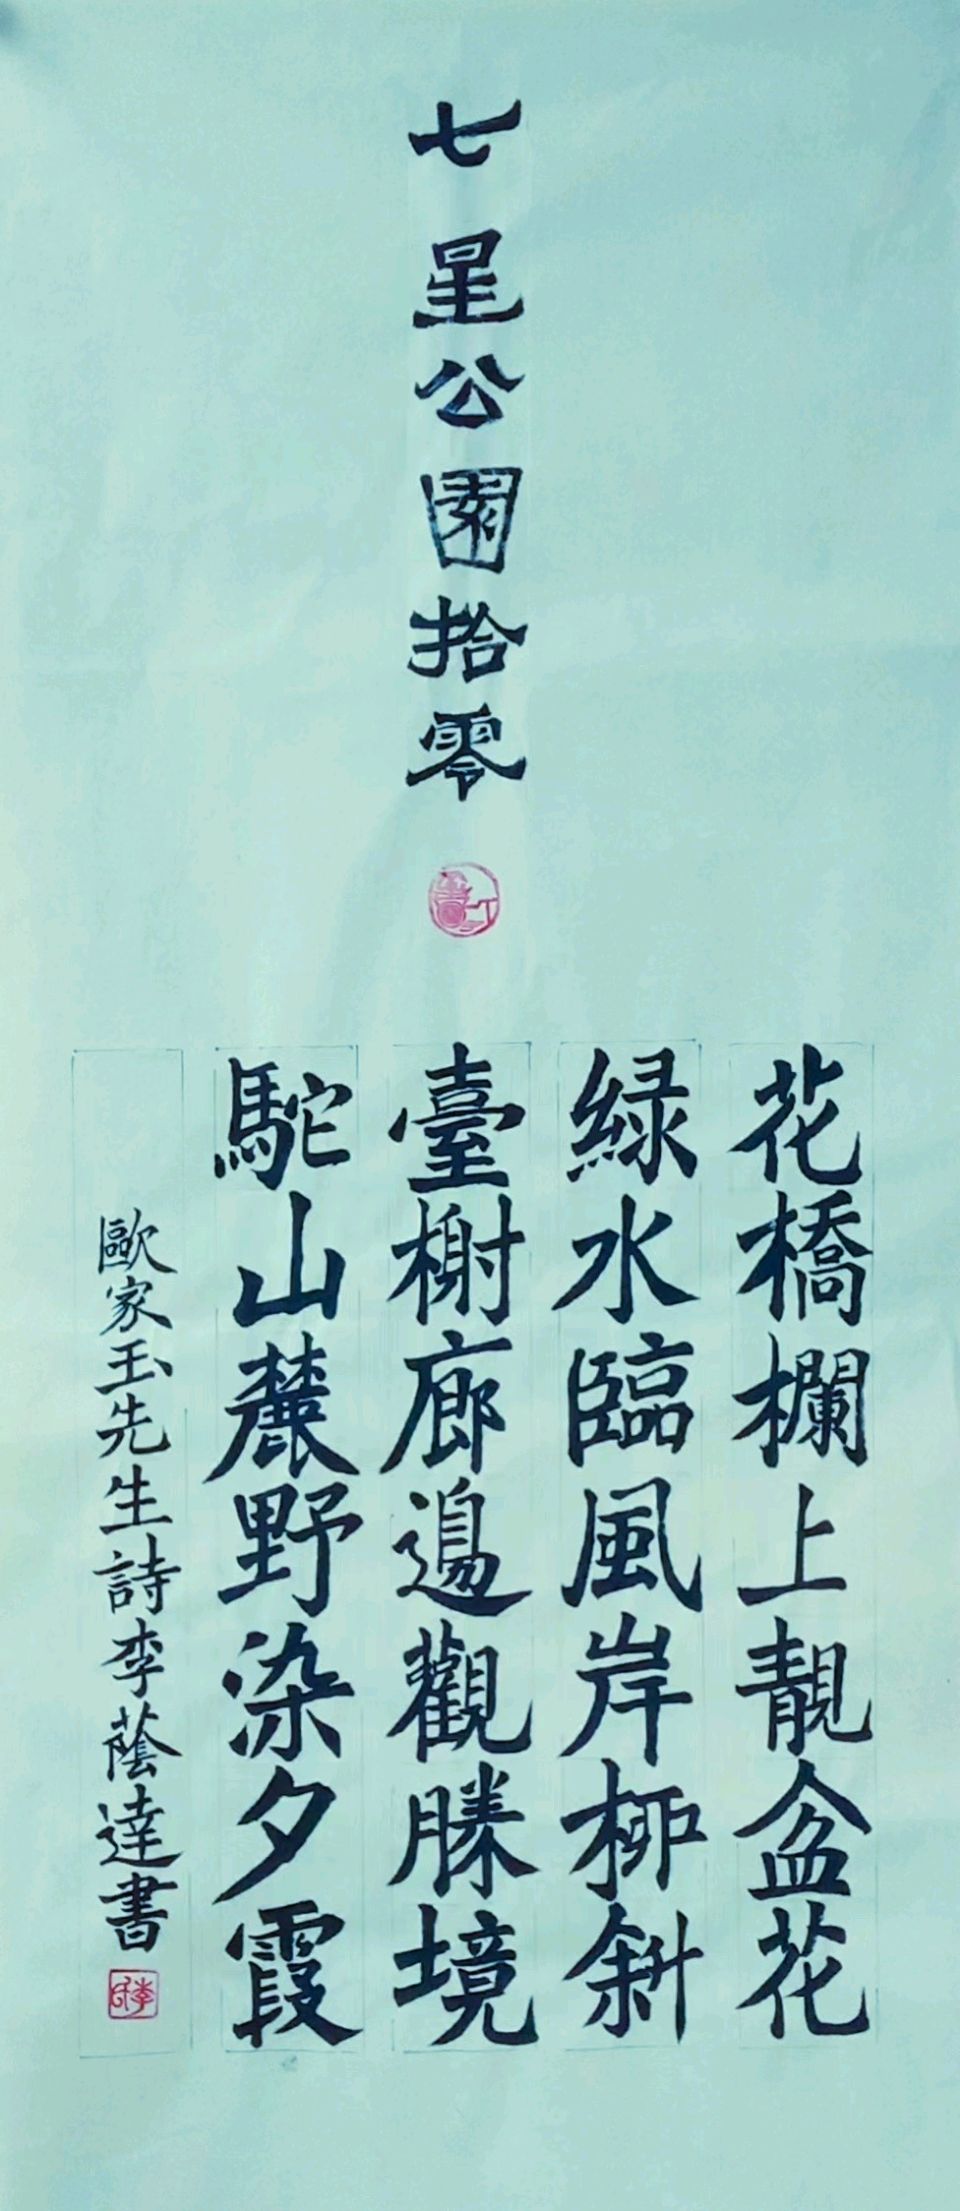 七星公園拾零
花橋欄上靚盆花
緑水臨風岸栁斜
臺榭廊邊觀勝境
駝山麓野染夕霞
歐家玉先生詩李蔭達書